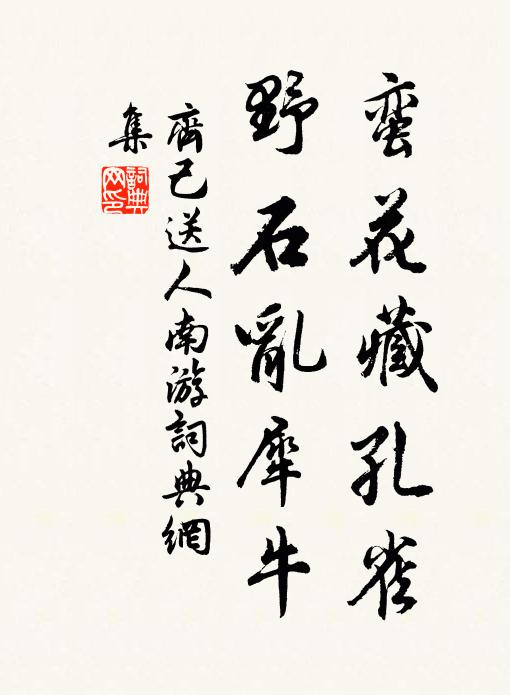 蛮花藏孔雀
野石亂犀牛
齊己送人南游詞典網
集
詞典
网印